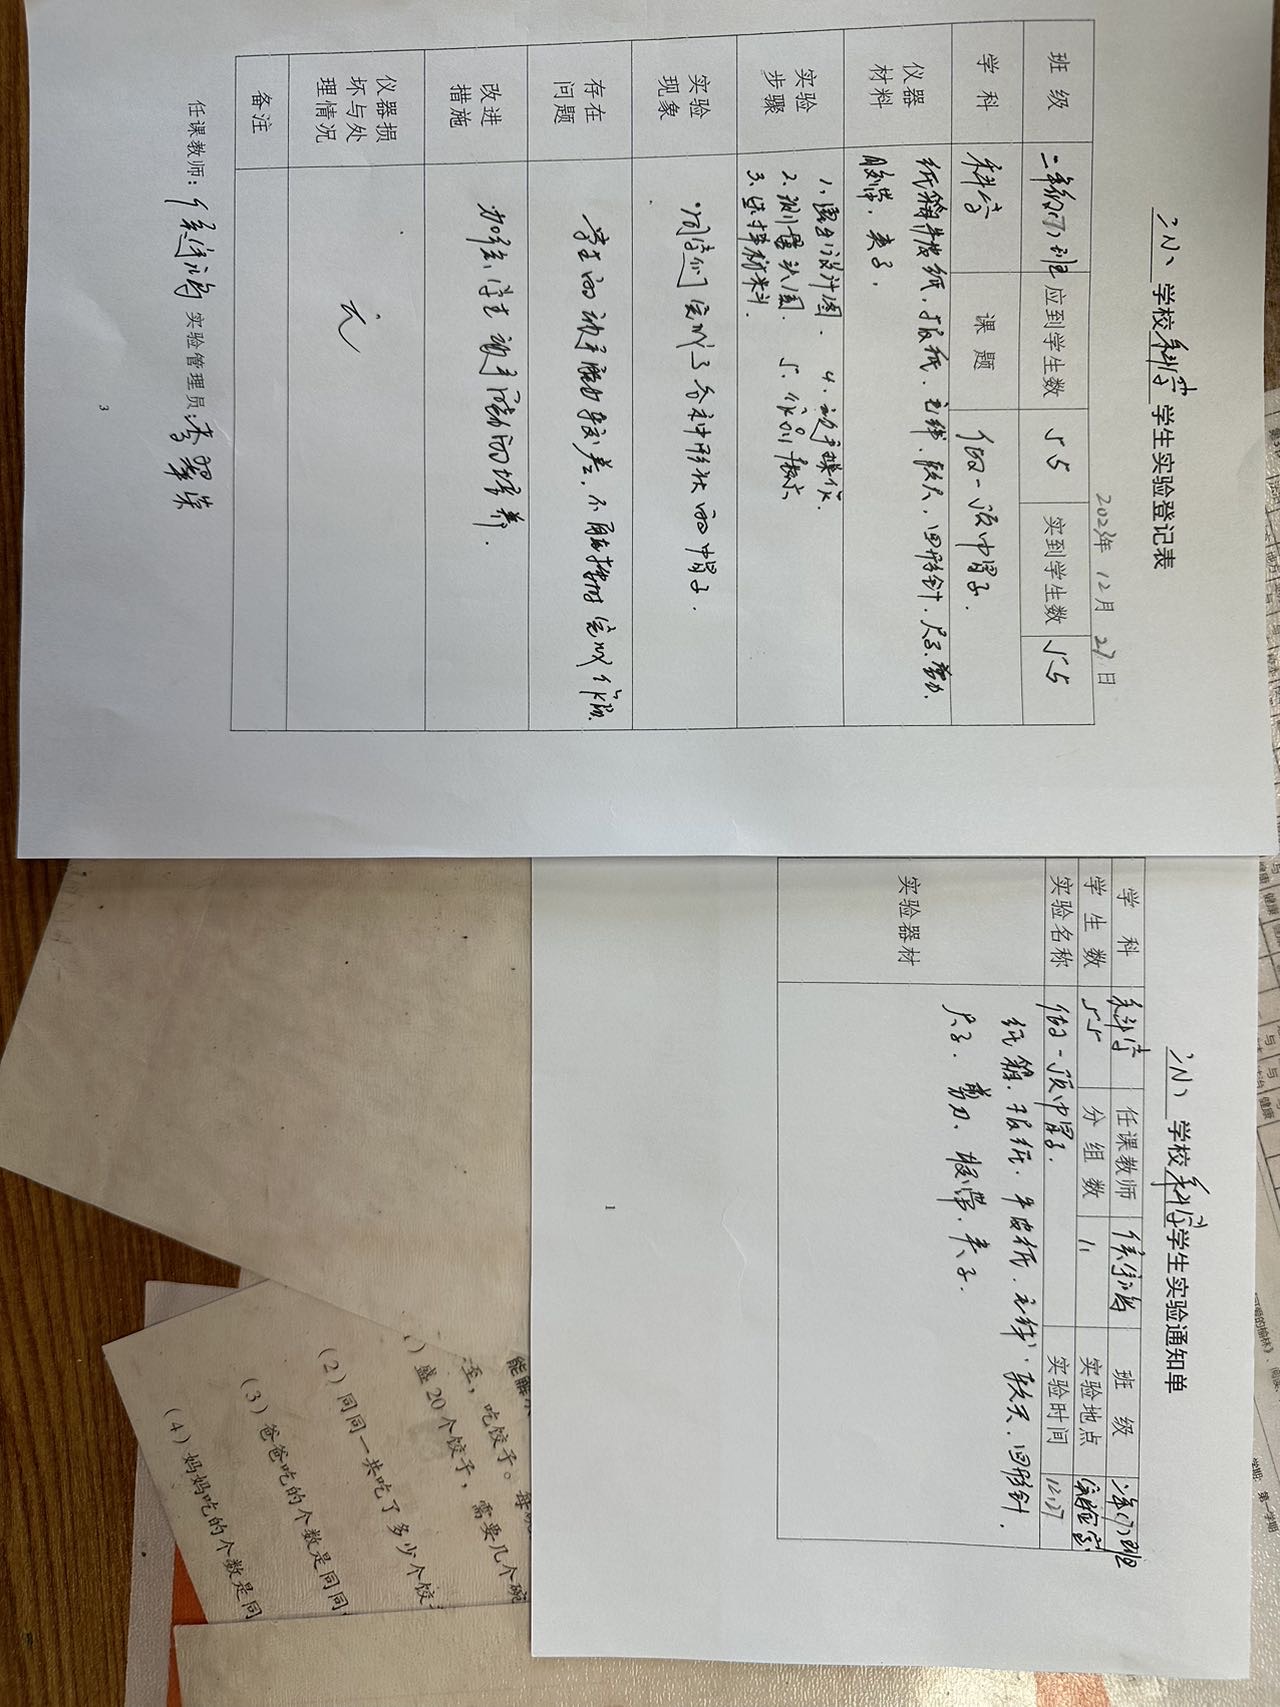 学校科学学生实验登记表
2023年 12月 27日
班级 二年级(7)班 应到学生数 55 实到学生数 55
学科 科学 课题 做一顶帽子.
仪器材料 纸箱、牛皮纸、报纸、毛线、软尺、回形针、尺子、剪刀、
胶带、夹子.
实验步骤 1、画出设计图. 4、动手操作.
2、测量头围. 5、
3、选择材料.
实验现象 同学们完成了各种形状的帽子.
存在问题 学生的动手能力较差,不能按时完成作品.
改进措施 加强学生动手能力的培养.
仪器损坏与处理情况 无
备注
任课教师: 实验管理员:
3
学校科学学生实验通知单
学科 科学 任课教师 班级 二年(7)班
学生数 55 分组数 11 实验地点 实验室
实验名称 做一顶帽子. 实验时间 12.27
实验器材 纸箱、报纸、牛皮纸、毛线、软尺、回形针、
尺子、剪刀、胶带、夹子.
1
吃饺子。每
盛20个饺子,需要几个碗
(2)同同一共吃了多少个饺
(3)爸爸吃的个数是同同
(4)妈妈吃的个数是同